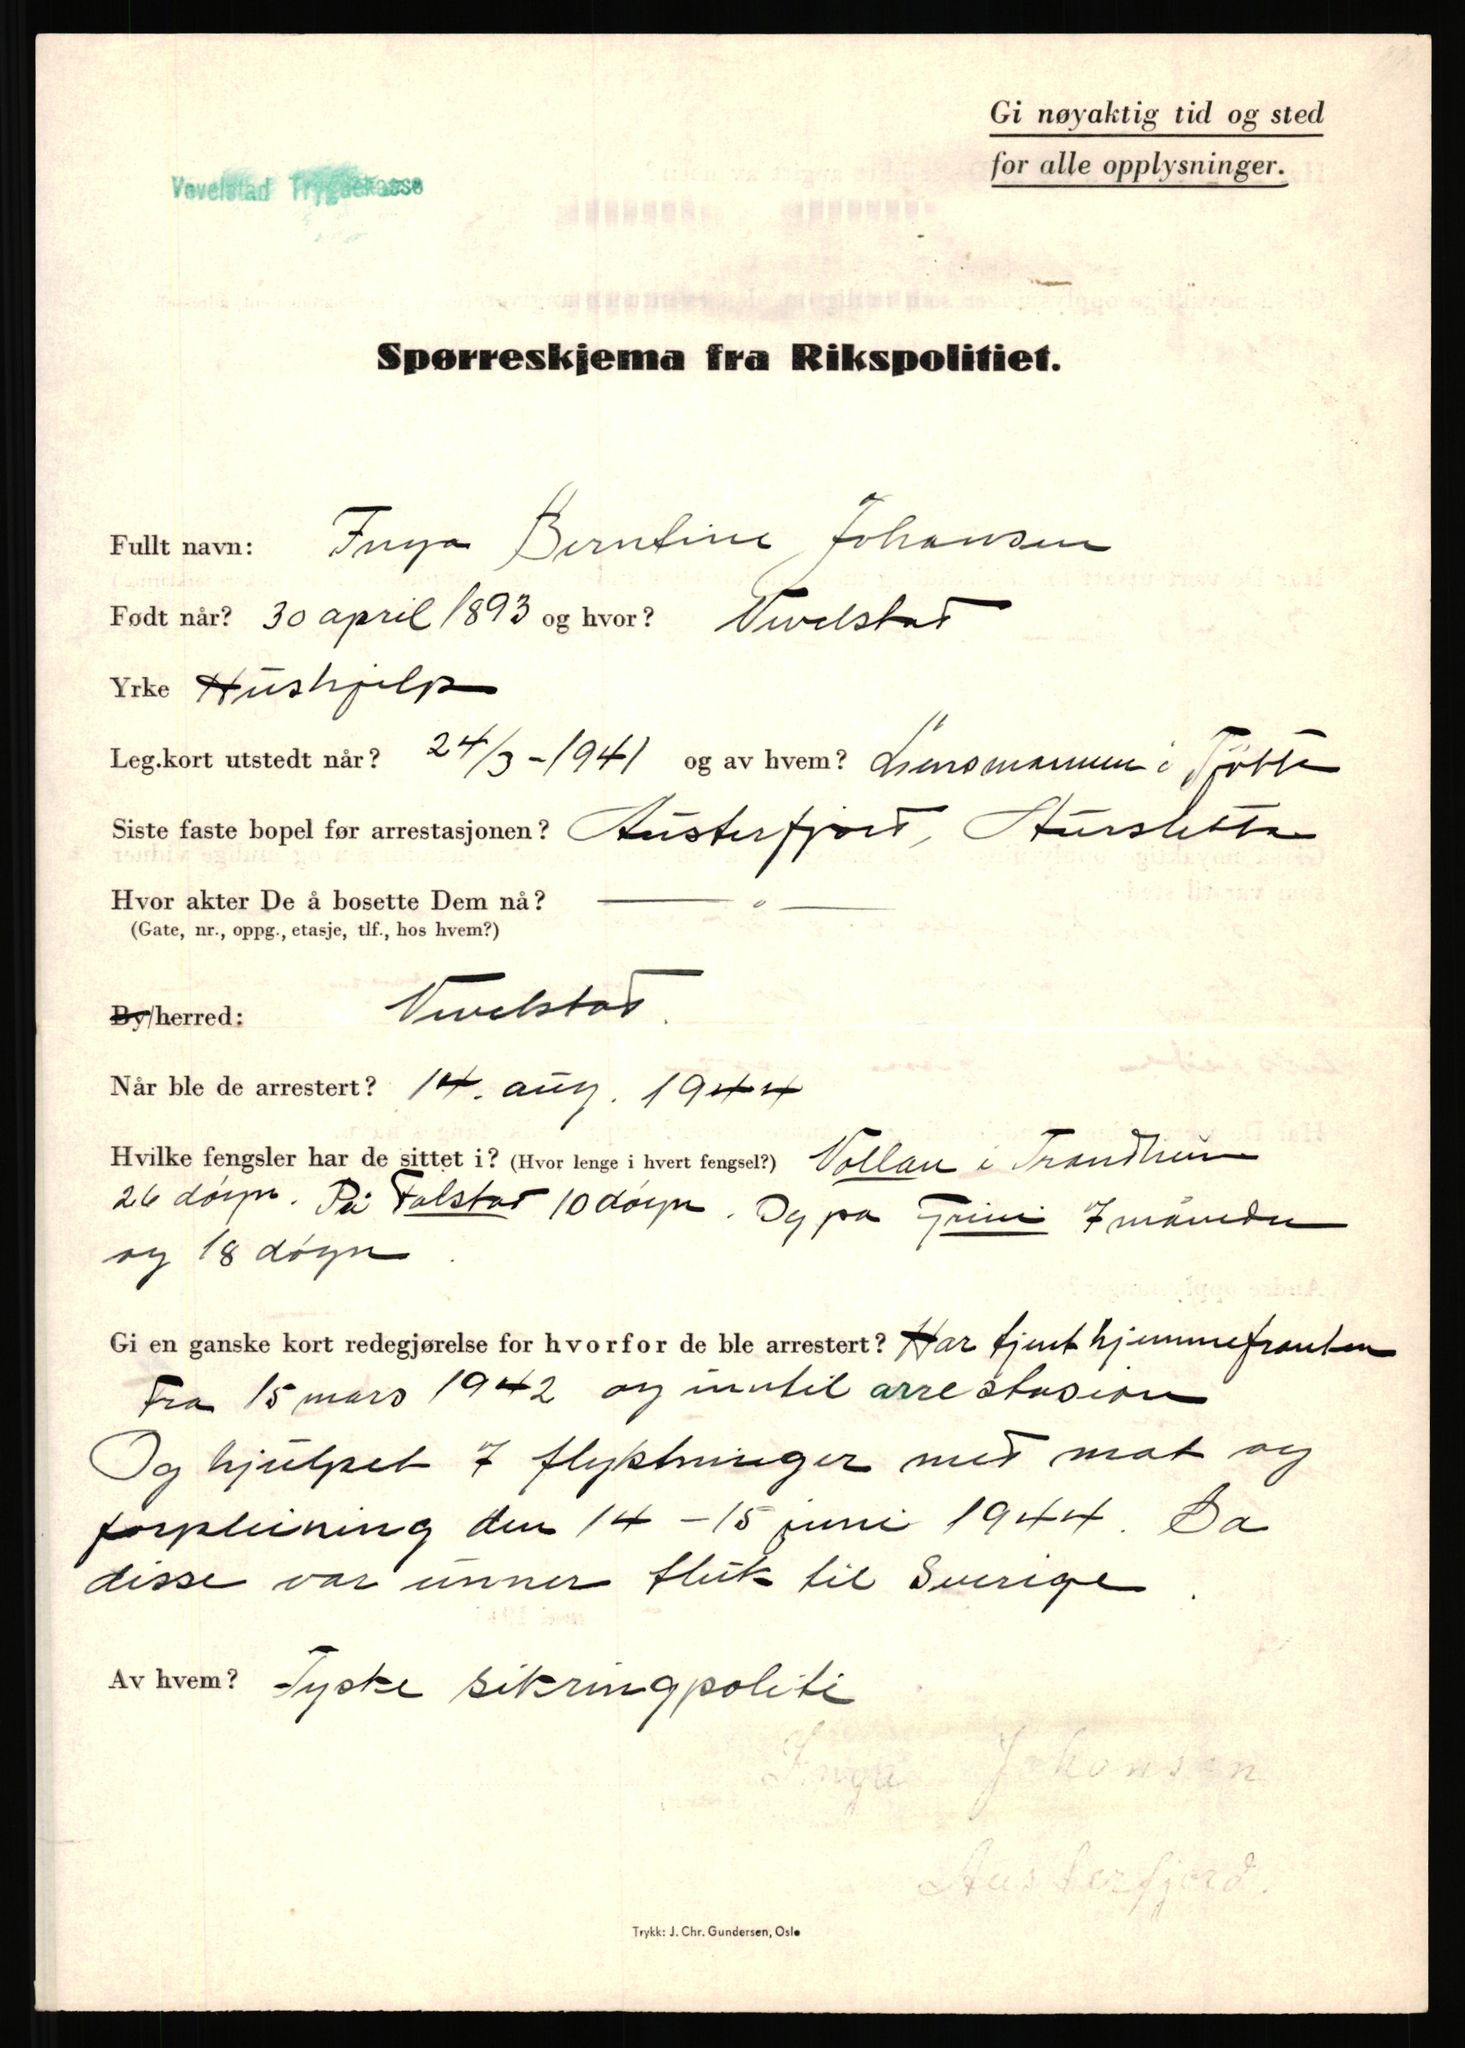 Gi nøyaktig tid og sted
for alle opplysninger.
Vevelstad Trygdekasse
Spørreskjema fra Rikspolitiet.
Fullt navn: Inga Berntine Johansen
Født når? 30 april 1893 og hvor? Vevelstad
Yrke Hushjelp
Leg.kort utstedt når? 24/3-1941 og av hvem? Lensmannen i Tjøtta
Siste faste bopel før arrestasjonen? Austerfjord, Aursletta
Hvor akter De å bosette Dem nå? — „ —
(Gate, nr., oppg., etasje, tlf., hos hvem?)
By/herred: Vevelstad.
Når ble de arrestert? 14. aug. 1944
Hvilke fengsler har de sittet i? (Hvor lenge i hvert fengsel?) Vollan i Trondheim
26 døgn. På Falstad 10 døgn. Og på Grini 7 måneder
og 18 døgn.
Gi en ganske kort redegjørelse for hvorfor de ble arrestert? Har tjent hjemmefronten
Fra 15 mars 1942 og inntil arrestasion
Og hjulpet 7 flyktninger med mat og
forpleining den 14-15 juni 1944. Da
disse var unner flukt til Sverige.
Av hvem? Tyske sikringpoliti
Inga Johansen
Austerfjord.
Trykk: J. Chr. Gundersen, Oslo